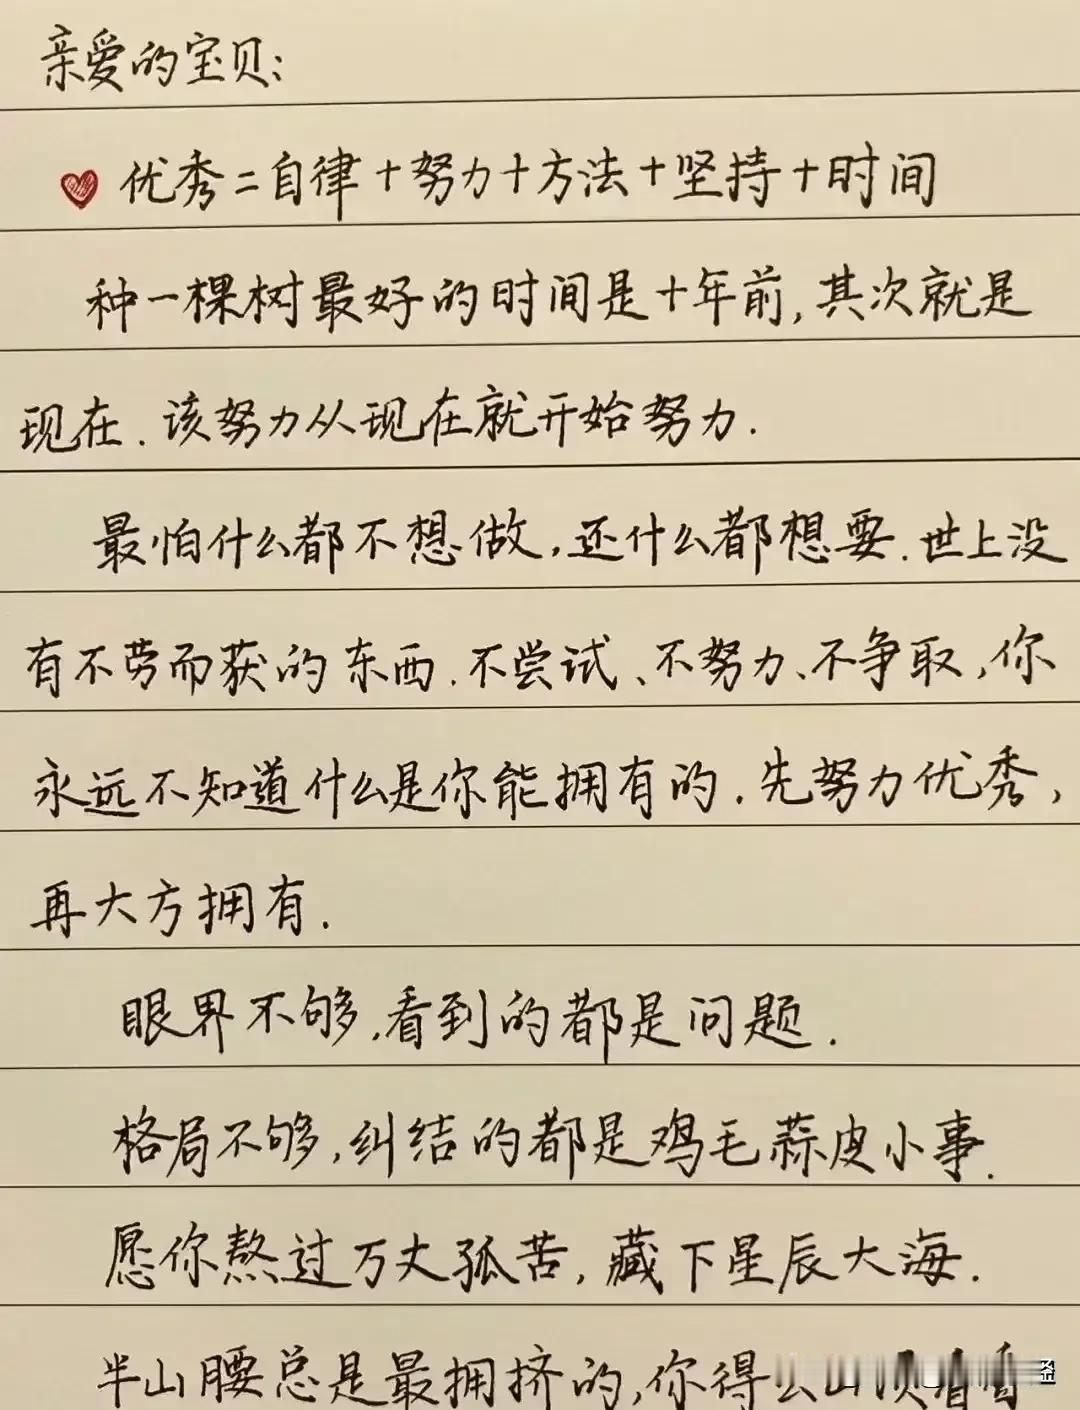 亲爱的宝贝:
优秀=自律+努力+方法+坚持+时间
种一棵树最好的时间是十年前,其次就是
现在.该努力从现在就开始努力.
最怕什么都不想做,还什么都想要.世上没
有不劳而获的东西.不尝试、不努力、不争取,你
永远不知道什么是你能拥有的.先努力优秀,
再大方拥有.
眼界不够,看到的都是问题.
格局不够,纠结的都是鸡毛蒜皮小事.
愿你熬过万丈孤苦,藏下星辰大海.
半山腰总是最拥挤的,你得